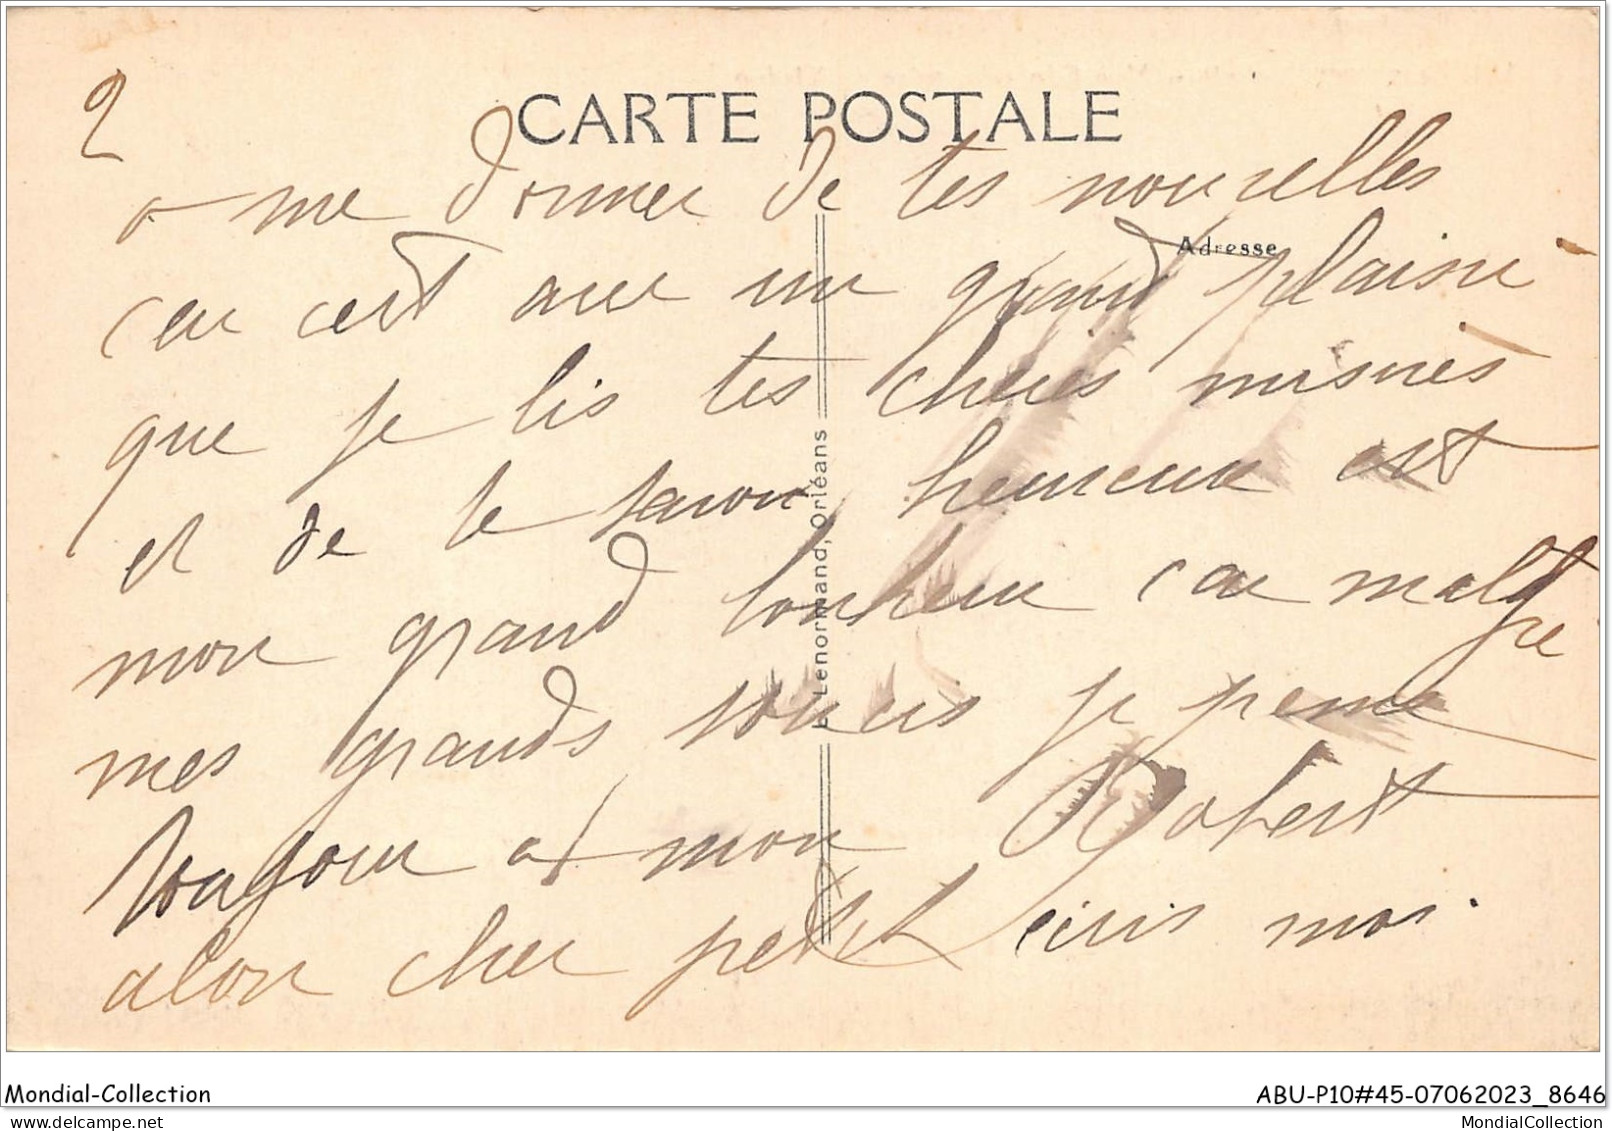 2
CARTE POSTALE
a me donner de tes nouvelles
Adresse
car cest avec un grand plaisir
que je lis tes cheres
et de te savoir heureux est
mon grand bonheur car malgre
mes grands soucis je pense
toujour a mon Robert
alor cher petit ecris moi.
Lenormand, Orléans
Mondial-Collection
ABU-P10#45-07062023_8646
MondialCollection.com
MondialCollection